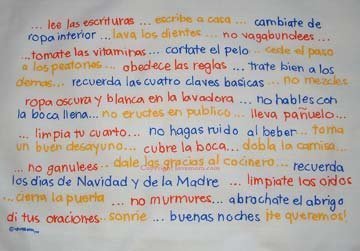 ... lee las escrituras ... escribe a casa ... cambiate de
ropa interior ... lava los dientes ... no vagabundees ...
...tomate las vitaminas... cortate el pelo... cede el paso
a los peatones... obedece las reglas ... trate bien a los
demas... recuerda las cuatro claves basicas ... no mezcles
ropa oscura y blanca en la lavadora ... no hables con
la boca llena... no eructes en publico ... lleva pañuelo...
... limpia tu cuarto... no hagas ruido al beber... toma
un buen desayuno... cubre la boca... dobla la camisa...
... no ganulees ... dale las gracias al cocinero ... recuerda
los dias de Navidad y de la Madre ... limpiate los oidos
... cierra la puerta ... no murmures... abrochate el abrigo
di tus oraciones... sonrie ... buenas noches ¡te queremos!